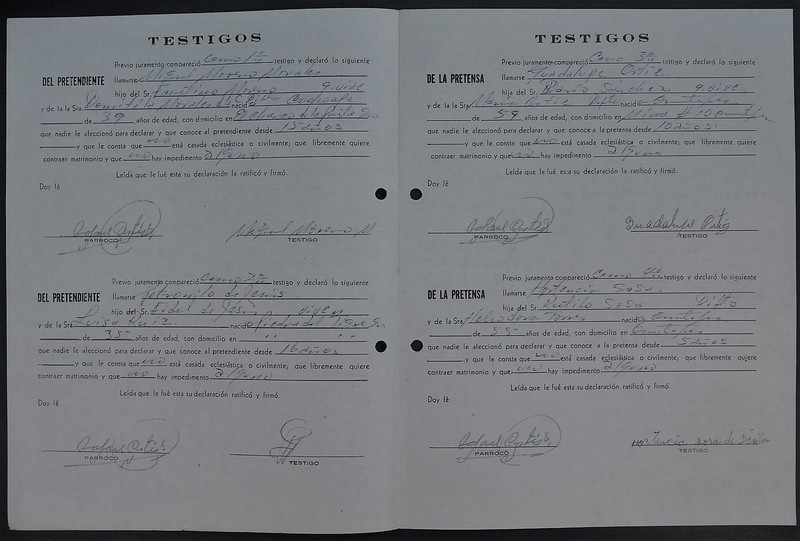 TESTIGOS
Previo juramento compareció Como 1er testigo y declaró lo siguiente
DEL PRETENDIENTE llamarse Miguel Moreno Morales
hijo del Sr. Moreno q. vive
y de la Sra. Domitila Morales nació
de 39 años de edad, con domicilio en
que nadie le aleccionó para declarar y que conoce al pretendiente desde 15 años
y que le consta que no está casada eclesiástica o civilmente; que libremente quiere
contraer matrimonio y que no hay impedimento alguno
Leída que le fué esta su declaración la ratificó y firmó.
Doy fé
Rafael Cortés Miguel Moreno M.
PARROCO TESTIGO
Previo juramento compareció Como 2o testigo y declaró lo siguiente
DEL PRETENDIENTE llamarse Petronilo de Jesús
hijo del Sr. Fidel de Jesús viven
y de la Sra. Luisa Ruiz nació
de 35 años de edad, con domicilio en " "
que nadie le aleccionó para declarar y que conoce al pretendiente desde 16 años
y que le consta que no está casada eclesiástica o civilmente; que libremente quiere
contraer matrimonio y que no hay impedimento alguno
Leída que le fué esta su declaración ratificó y firmó.
Doy fé
Rafael Cortés
PARROCO TESTIGO
TESTIGOS
Previo juramento compareció Como 3er testigo y declaró lo siguiente
DE LA PRETENSA llamarse Guadalupe Ortiz
hija del Sr. Darío Sánchez q. vive
y de la Sra. María Ortiz nació
de 59 años de edad, con domicilio en
que nadie le aleccionó para declarar y que conoce a la pretensa desde 10 años
y que le consta que no está casada eclesiástica o civilmente; que libremente quiere
contraer matrimonio y que no hay impedimento alguno
Leída que le fué esta su declaración la ratificó y firmó.
Doy fé
Rafael Cortés Guadalupe Ortiz
PARROCO TESTIGO
Previo juramento compareció Como 4o testigo y declaró lo siguiente
DE LA PRETENSA llamarse Hortencia Sosa
hija del Sr. Rutilo Sosa Difto
y de la Sra. Torres nació
de 55 años de edad, con domicilio en
que nadie le aleccionó para declarar y que conoce a la pretensa desde 5 años
y que le consta que no está casada eclesiástica o civilmente; que libremente quiere
contraer matrimonio y que no hay impedimento alguno
Leída que le fué esta su declaración ratificó y firmó.
Doy fé
Rafael Cortés Hortencia sosa de
PARROCO TESTIGO